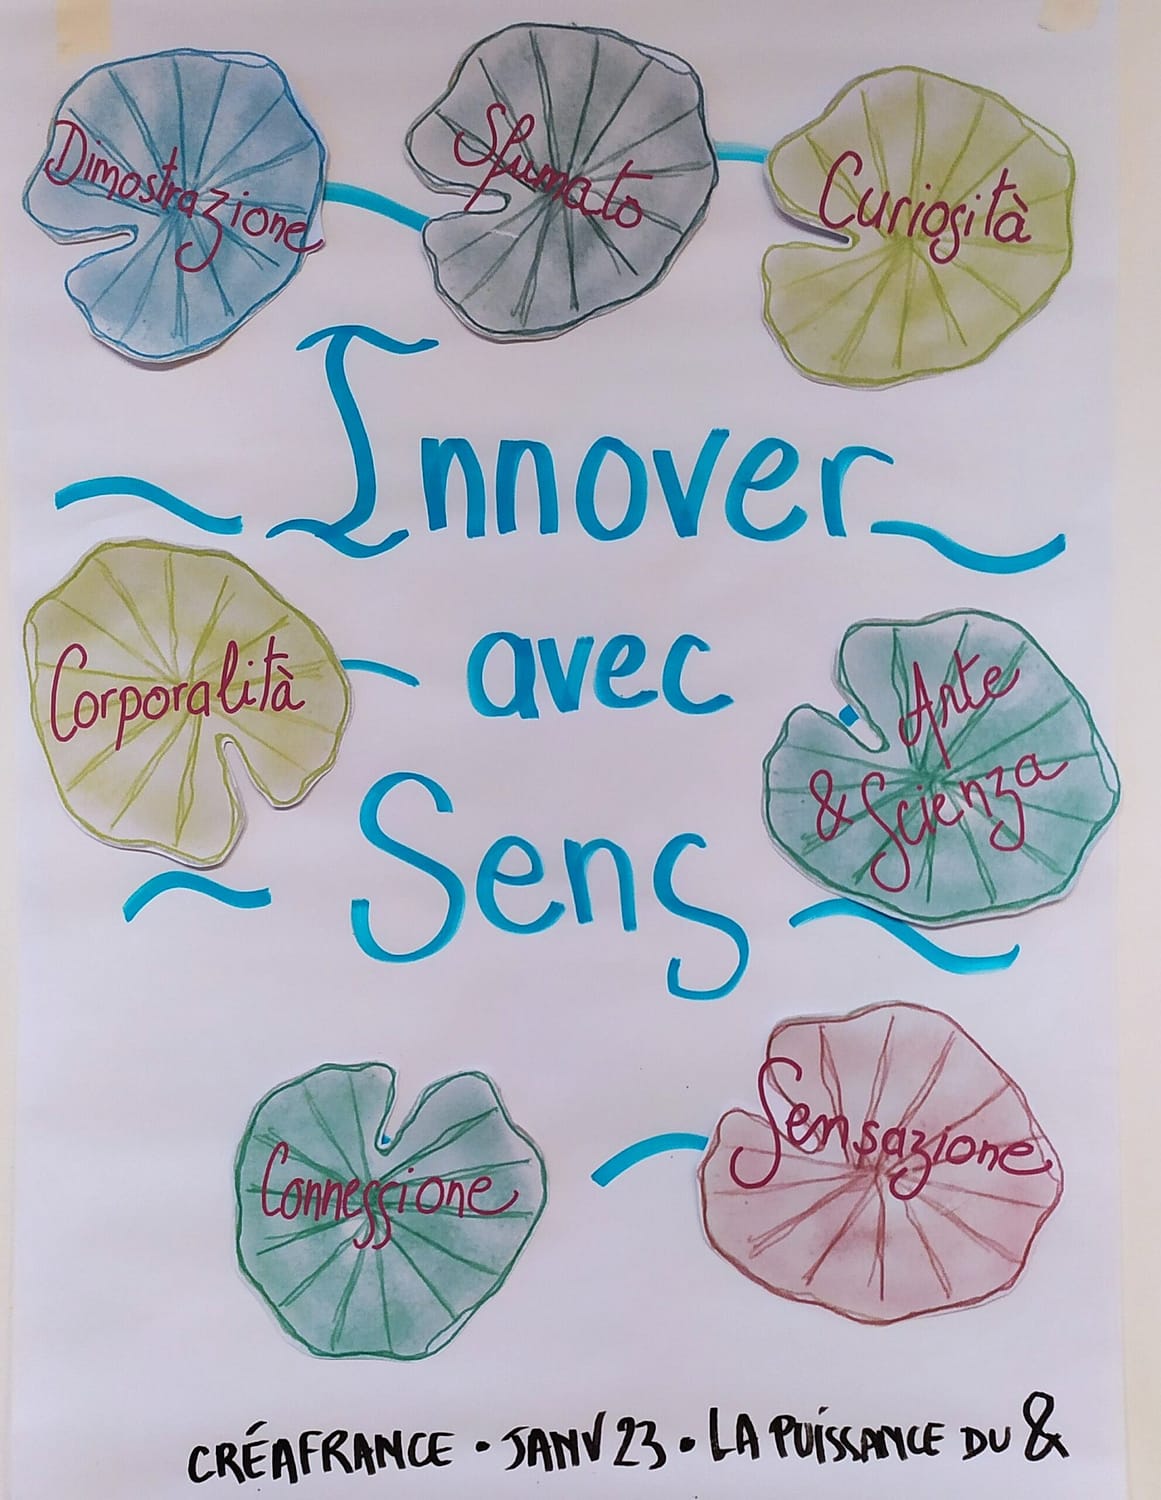 Dimostrazione
Sfumato
Curiosità
Innover
avec
Sens
Corporalità
Arte
& Scienza
Connessione
Sensazione
CRÉAFRANCE • JANV 23 • LA PUISSANCE DU &